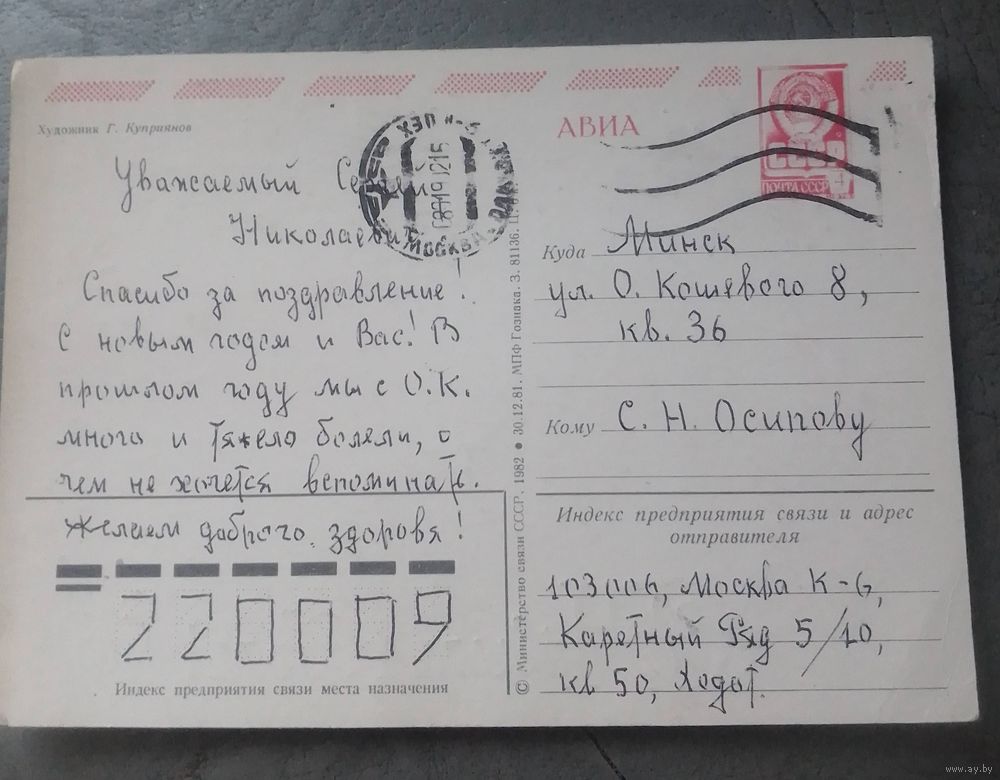 Художник Г. Куприянов
Уважаемый Сергей
Николаевич
Спасибо за поздравление!
С новым годом и Вас! В
прошлом году мы с О.К.
много и тяжело болели, о
чем не хочется вспоминать.
Желаем доброго здоровя!
220009
Индекс предприятия связи места назначения
© Министерство связи СССР, 1982 ● 30.12.81. МПФ Гознака. З. 81136. Ц.
МОСКВА
АВИА
СССР
ПОЧТА СССР 4
Куда Минск
ул. О. Кошевого 8,
кв. 36
Кому С. Н. Осипову
Индекс предприятия связи и адрес
отправителя
103006, Москва К-6,
Каретный Ряд 5/10,
кв 50, Ходот.
www.ay.by